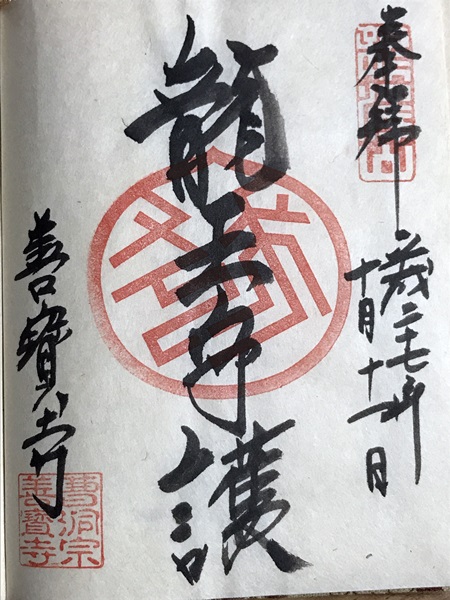 奉拝
平成二十七年
十月十一日
龍王守護
善寳寺
曹洞宗
善寳寺